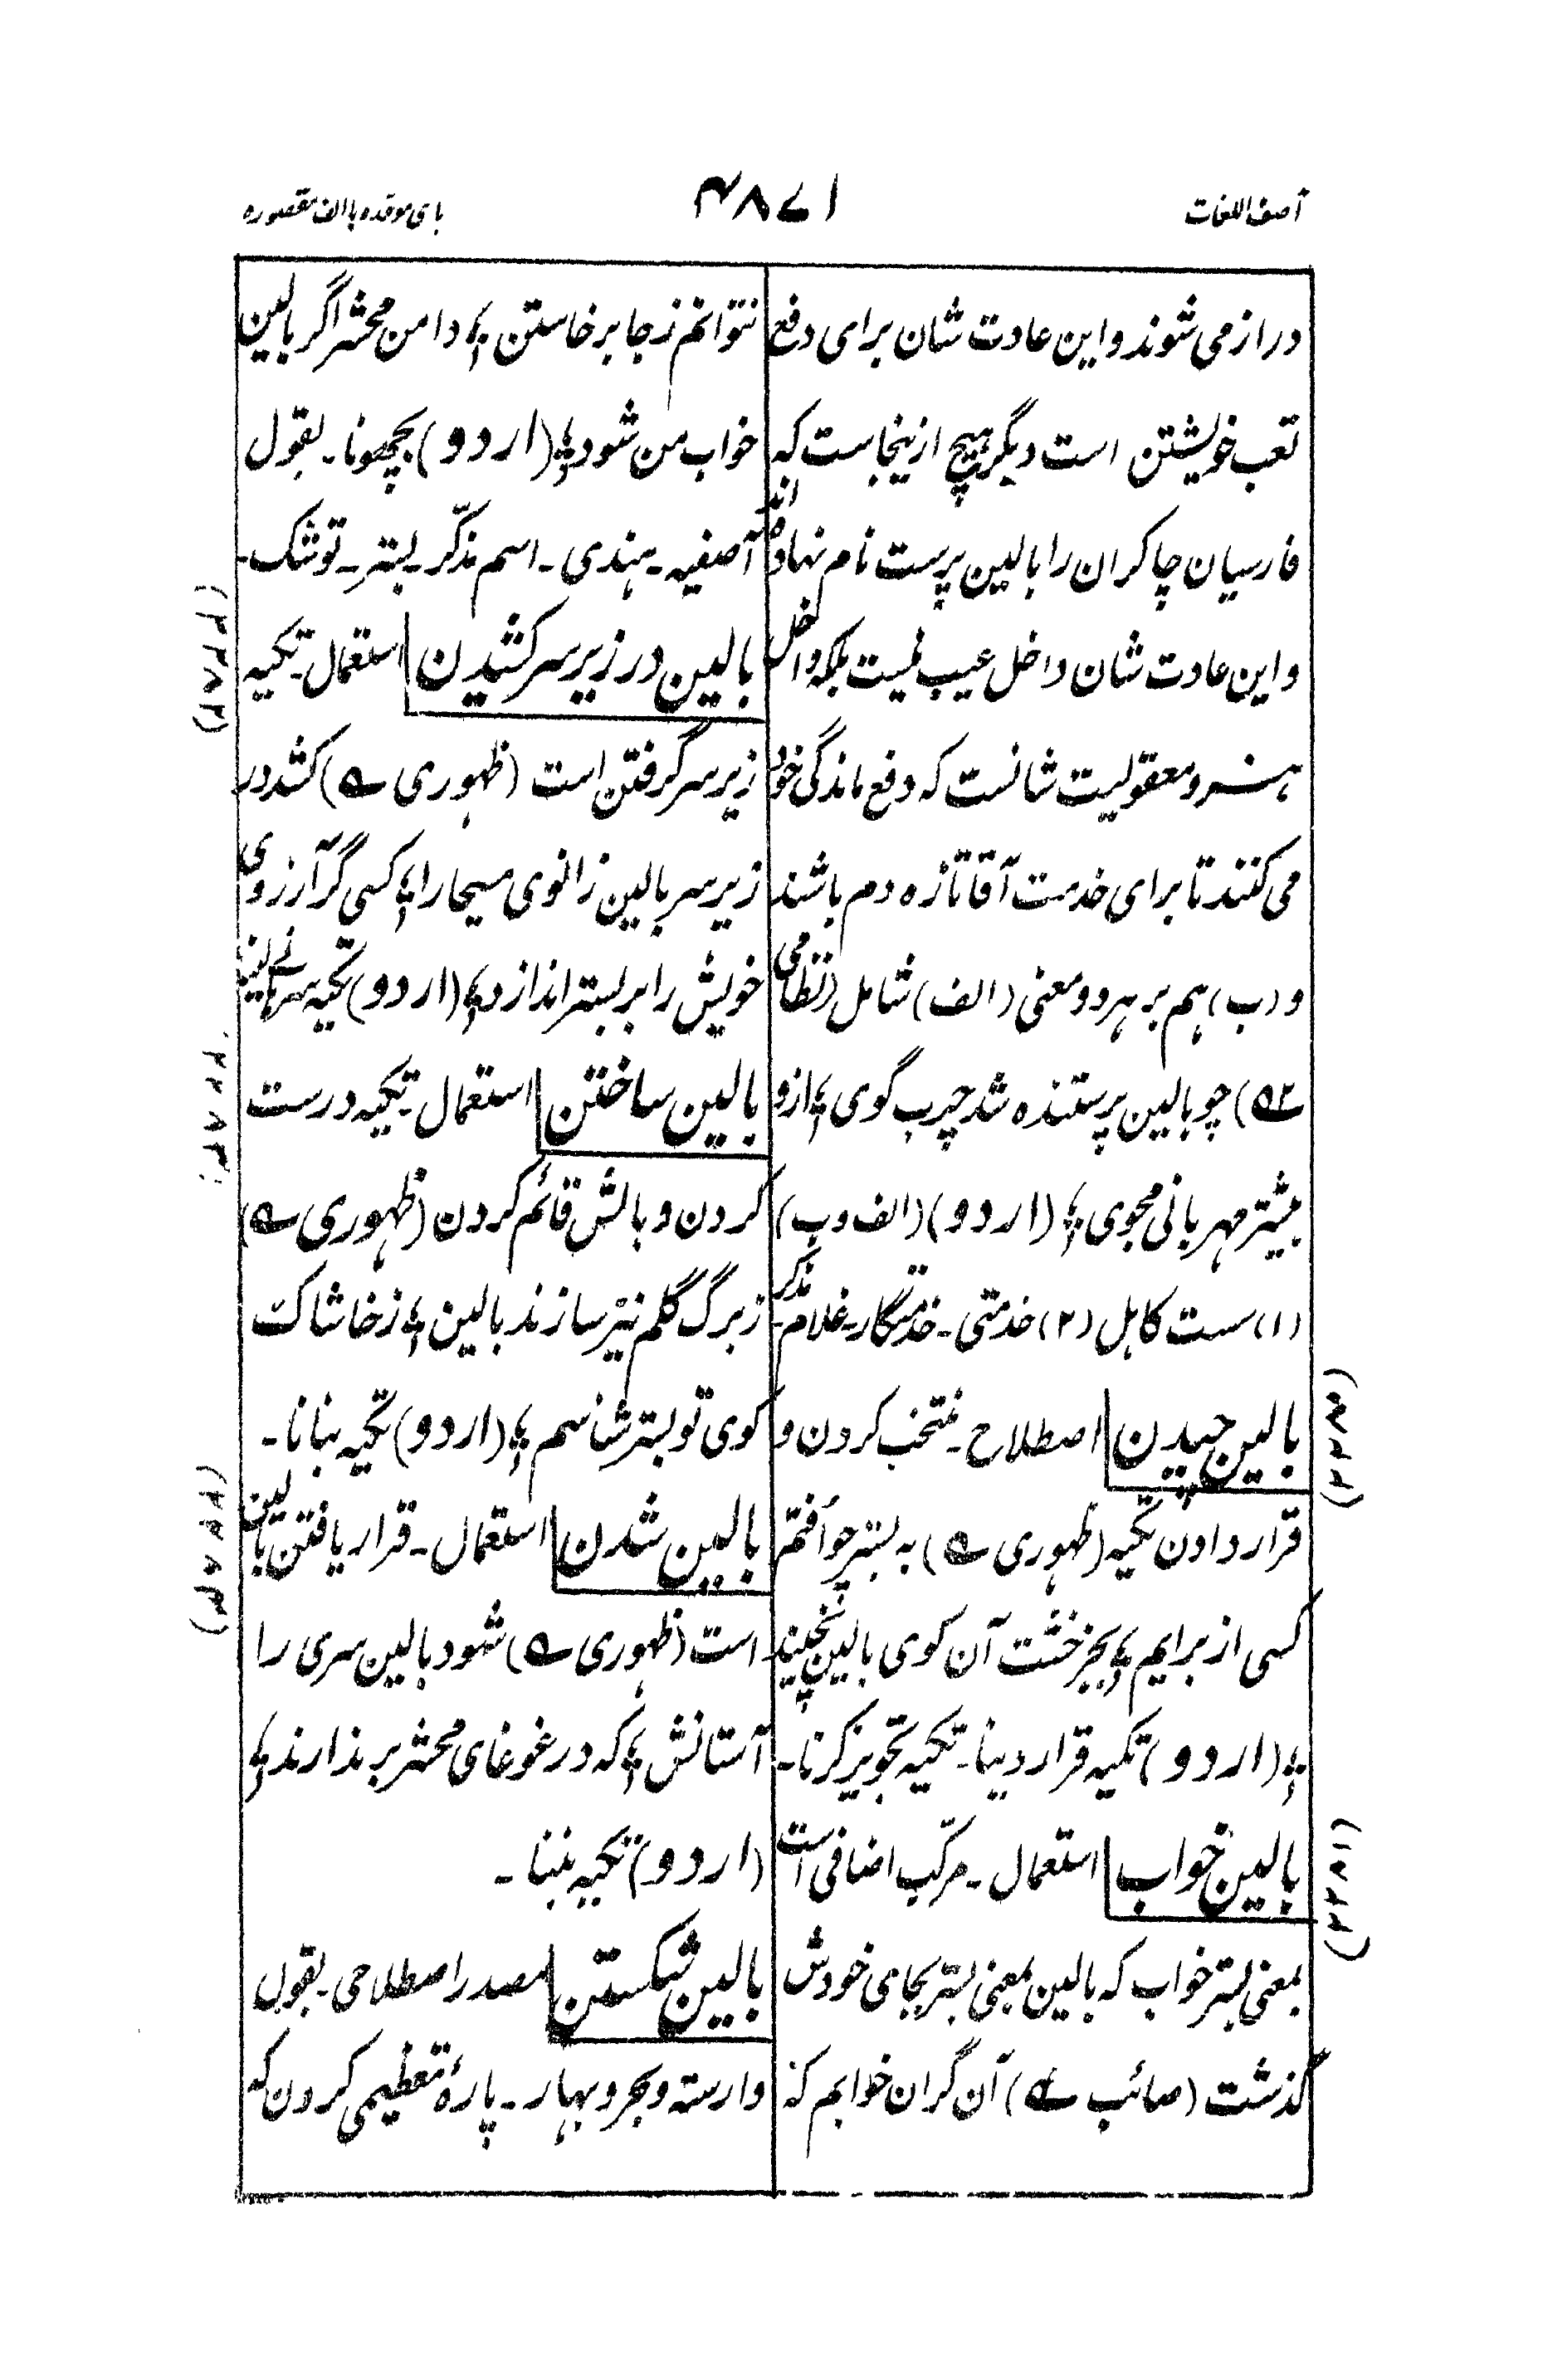 آصف اللغات
۴۸۷۱
بای موحده با الف مقصوره
دراز می شوند و این عادت شان برای دفع
تعب خویشتن است دیگر ہیچ ازینجاست که
فارسیان چاکران را بالین پرست نام نہاده اند
و این عادت شان داخل عیب نیست بلکه داخل
ہنر و معقولیت شانست که دفع ماندگی خود
می کنند تا برای خدمت آقا تازه دم باشند
و (ب) ہم بر ہر دو معنی (الف) شامل (نظامی
۲ے) چو بالین پرستنده شد چرب گوی ؛ ازو
بیشتر مہربانی مجوی ؛ (اردو) (الف و ب)
(۱) سست کاہل (۲) خدمتی ۔ خدمتگار ۔ غلام ۔ مذکر
بالین چیدن اصطلاح ۔ منتخب کردن و
(۲۲۸۰)
قرار دادن تکیه (ظہوری ے) به بستر چو افتم
کسی از برایم ؛ بجز خشت آن کوی بالین نچیند
؛ (اردو) تکیه قرار دینا ۔ تکیه تجویز کرنا ۔
بالین خواب استعمال ۔ مرکّب اضافی است
(۲۲۸۱)
بمعنی بستر خواب که بالین بمعنی بستر بجای خودش
گذشت (صائب ے) آن گران خوابم که
نتوانم ز جا برخاستن ؛ دامن محشر اگر بالین
خواب من شود ؛ (اردو) بچھونا ۔ بقول
آصفیه ۔ ہندی ۔ اسم مذکّر ۔ بستر ۔ توشک ۔
بالین در زیر سر کشیدن استعمال ۔ تکیه
(۲۲۸۲)
زیر سر گرفتن است (ظہوری ے) کشد در
زیر سر بالین زانوی مسیحا را ؛ کسی گر آرزوی
خویش را بر بستر اندازد ؛ (اردو) تکیه سرہانے لینا
بالین ساختن استعمال ۔ تکیه درست
۲۲۸۳
کردن و بالش قائم کردن (ظہوری ے)
ز برگ گلم نیز سازند بالین ؛ ز خاشاک
کوی تو بستر شناسم ؛ (اردو) تکیه بنانا ۔
بالین شدن استعمال ۔ قرار یافتن بالین
(۲۲۸۴)
است (ظہوری ے) شود بالین سری را
آستانش ؛ که در غوغای محشر بر ندارند ؛
(اردو) تکیه بننا ۔
بالین شکستن مصدر اصطلاحی ۔ بقول
وارسته و بحر و بہار ۔ پارهٔ تعظیمی کردن که